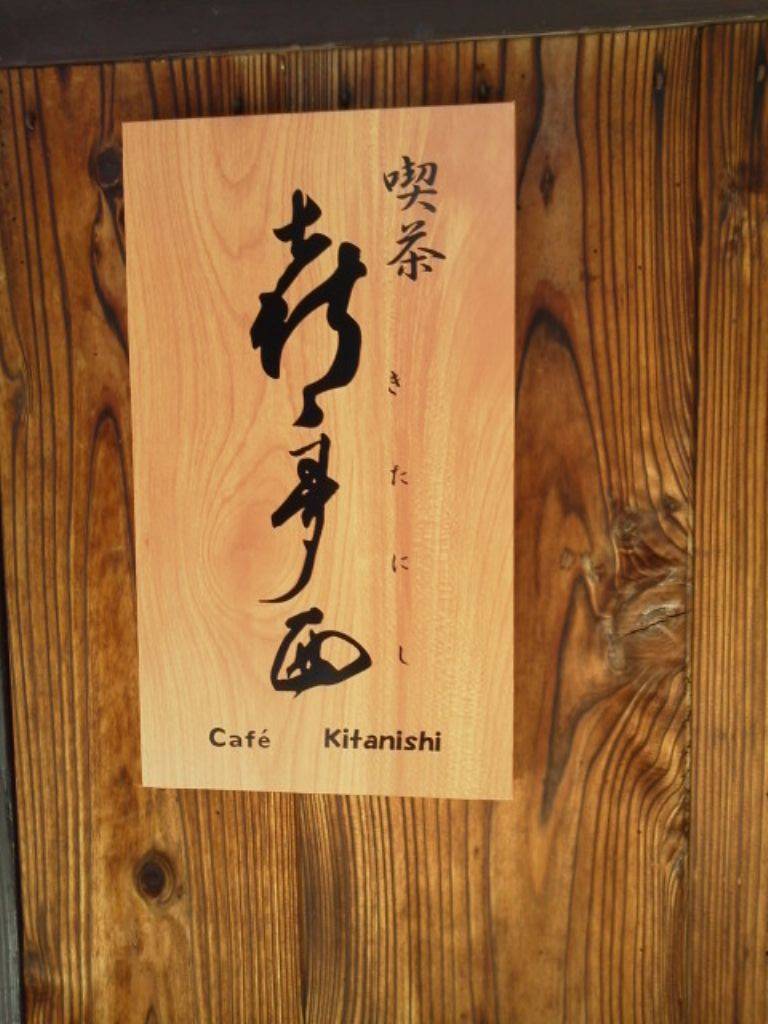 喫茶 きたにし
喜多西
Café Kitanishi